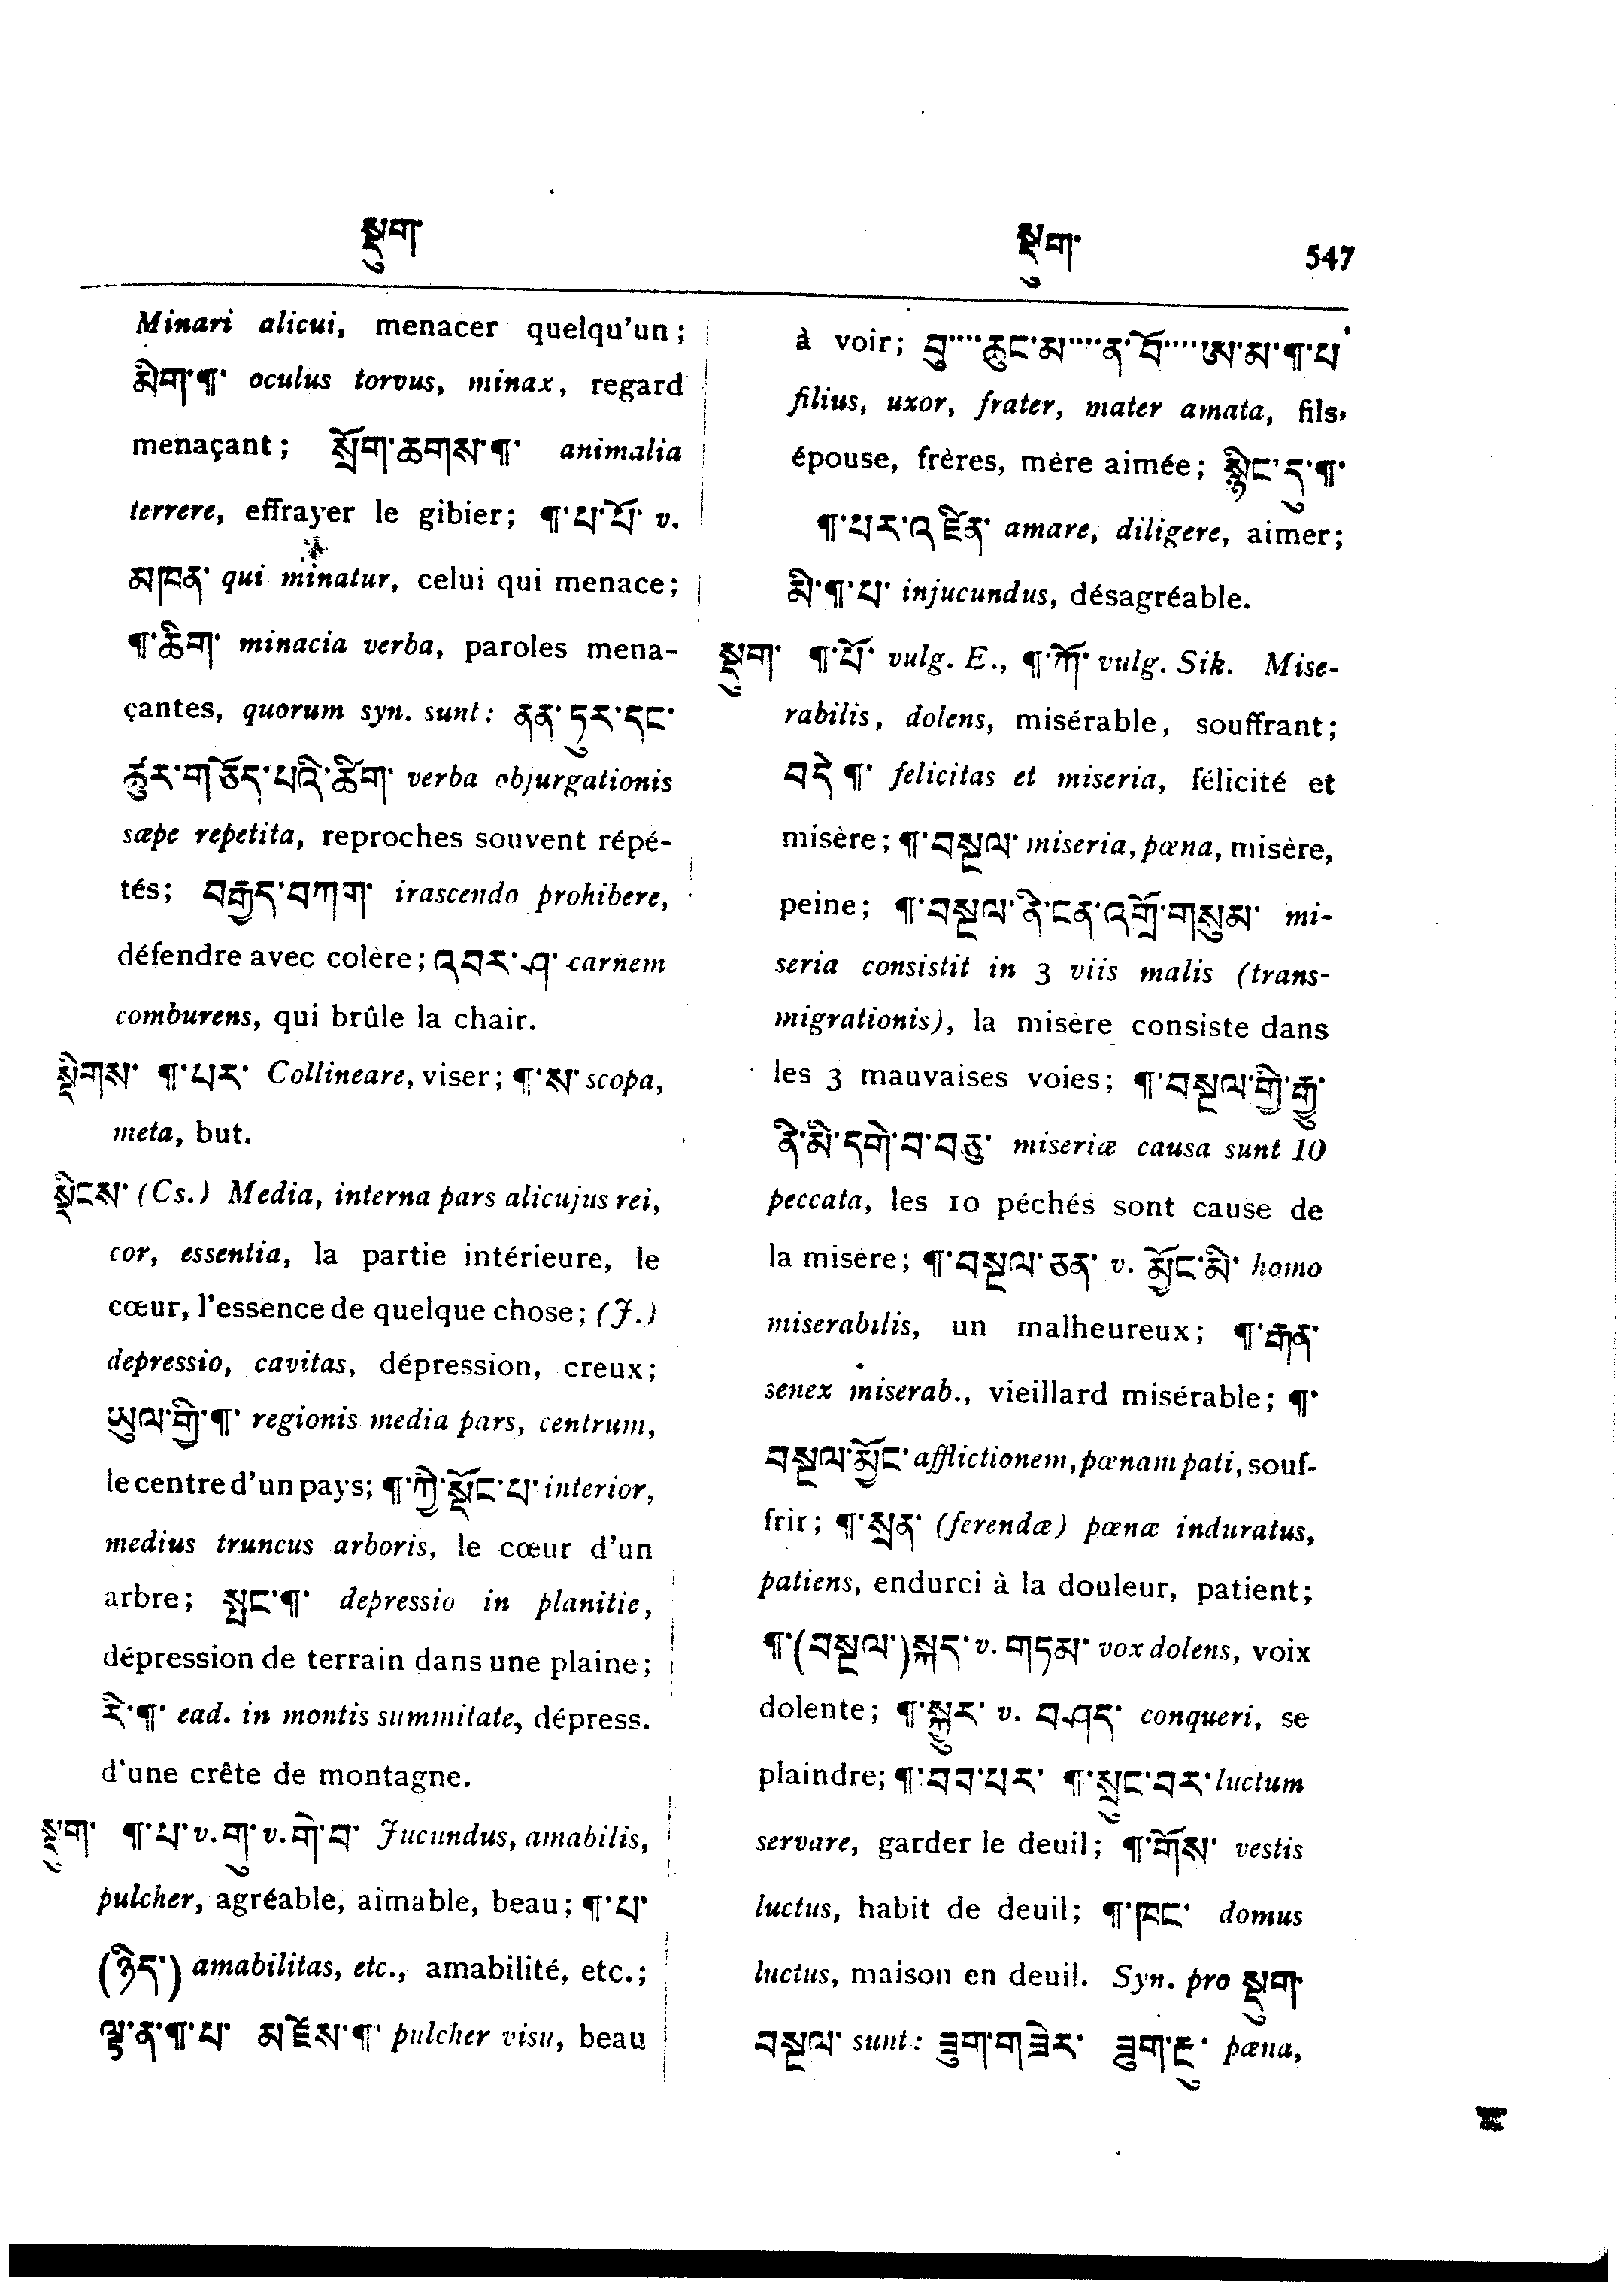 སྡུག་
སྡུག་
547
Minari alicui, menacer quelqu'un;
མིག་¶་ oculus torvus, minax, regard
menaçant; སྲོག་ཆགས་¶་ animalia
terrere, effrayer le gibier; ¶་པ་པོ་ v.
མཁན་ qui minatur, celui qui menace;
¶་ཚིག་ minacia verba, paroles mena-
çantes, quorum syn. sunt: ནན་ཏུར་དང་
ཚུར་གཅོད་པའི་ཚིག་ verba objurgationis
sæpe repetita, reproches souvent répé-
tés; བརྒྱད་བཀག་ irascendo prohibere,
défendre avec colère; འབར་ཤ་ carnem
comburens, qui brûle la chair.
སྡིགས་ ¶་པར་ Collineare, viser; ¶་ས་ scopa,
meta, but.
སྡིངས་ (Cs.) Media, interna pars alicujus rei,
cor, essentia, la partie intérieure, le
cœur, l'essence de quelque chose; (J.)
depressio, cavitas, dépression, creux;
ཡུལ་གྱི་¶་ regionis media pars, centrum,
le centre d'un pays; ¶་ཀྱི་སྡོང་པ་ interior,
medius truncus arboris, le cœur d'un
arbre; སྤང་¶་ depressio in planitie,
dépression de terrain dans une plaine;
རི་¶་ ead. in montis summitate, dépress.
d'une crête de montagne.
སྡུག་ ¶་པ་ v. གུ་ v. གེ་བ་ Jucundus, amabilis,
pulcher, agréable, aimable, beau; ¶་པ་
(ཉིད་) amabilitas, etc., amabilité, etc.;
ལྟ་ན་¶་པ་ མཛེས་¶་ pulcher visu, beau
à voir; བུ་····ཆུང་མ་····ན་བོ་····ཨ་མ་¶་པ་
filius, uxor, frater, mater amata, fils,
épouse, frères, mère aimée; སྙིང་དུ་¶་
¶་པར་འཛིན་ amare, diligere, aimer;
མི་¶་པ་ injucundus, désagréable.
སྡུག་ ¶་པོ་ vulg. E., ¶་ཀོ་ vulg. Sik. Mise-
rabilis, dolens, misérable, souffrant;
བདེ་¶་ felicitas et miseria, félicité et
misère; ¶་བསྔལ་ miseria, pœna, misère,
peine; ¶་བསྔལ་ནི་ངན་འགྲོ་གསུམ་ mi-
seria consistit in 3 viis malis (trans-
migrationis), la misère consiste dans
les 3 mauvaises voies; ¶་བསྔལ་གྱི་རྒྱུ་
ནི་མི་དགེ་བ་བཅུ་ miseriæ causa sunt 10
peccata, les 10 péchés sont cause de
la misère; ¶་བསྔལ་ཅན་ v. མྱོང་མི་ homo
miserabilis, un malheureux; ¶་རྒན་
senex miserab., vieillard misérable; ¶་
བསྔལ་མྱོང་ afflictionem, pœnam pati, souf-
frir; ¶་སྲན་ (ferendæ) pœnæ induratus,
patiens, endurci à la douleur, patient;
¶་(བསྔལ་)སྐད་ v. གཏམ་ vox dolens, voix
dolente; ¶་སྐུར་ v. བཤད་ conqueri, se
plaindre; ¶་བབ་པར་ ¶་སྲུང་བར་ luctum
servare, garder le deuil; ¶་གོས་ vestis
luctus, habit de deuil; ¶་ཁང་ domus
luctus, maison en deuil. Syn. pro སྡུག་
བསྔལ་ sunt: ཟུག་གཟེར་ ཟུག་རྔུ་ pœna,